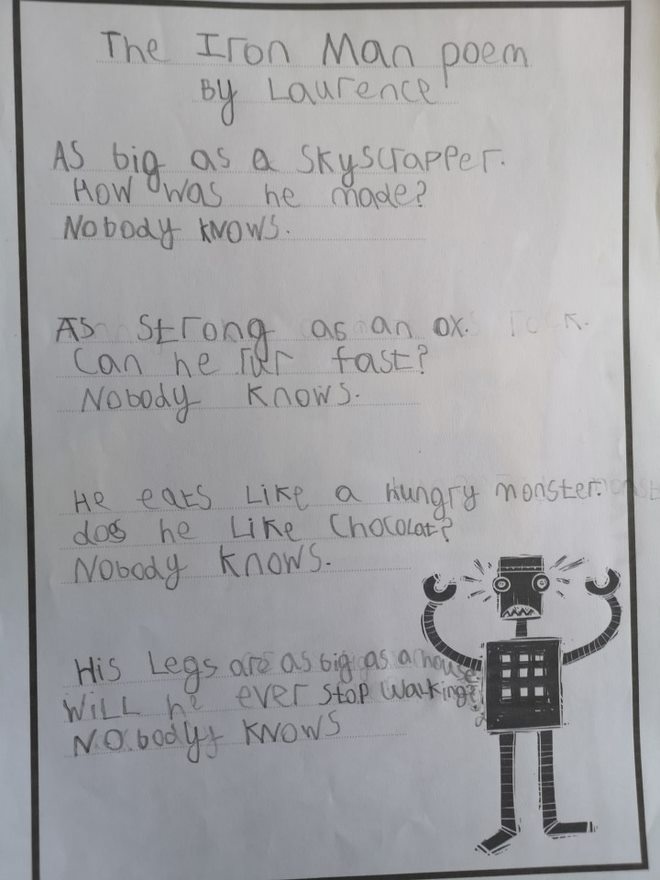 The Iron Man poem
By Laurence
As big as a skyscrapper.
How was he made?
Nobody knows.
As strong as an ox.
Can he run fast?
Nobody knows.
He eats like a hungry monster.
does he like chocolat?
Nobody knows.
His legs are as big as a house.
Will he ever stop walking?
Nobody knows